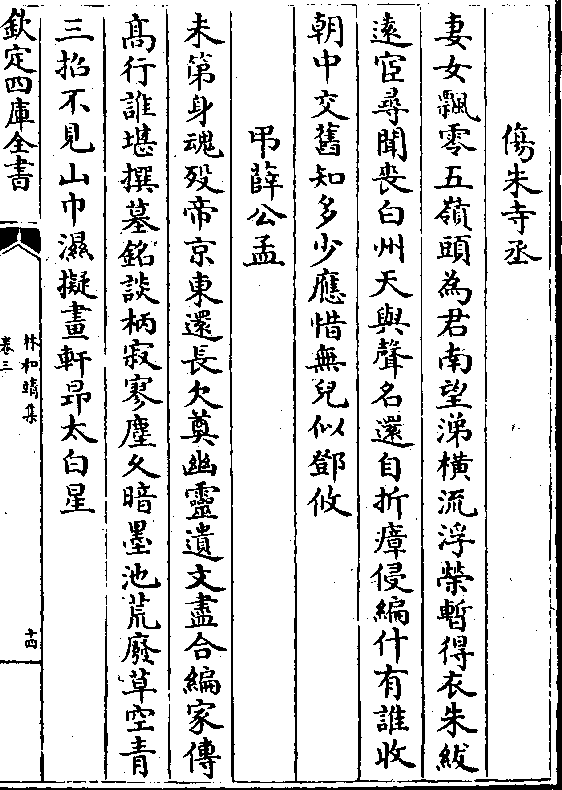 傷朱寺丞
妻女飄零五嶺頭為君南望涕橫流浮榮暫得衣朱紱
遠宦尋聞喪白州天與聲名還自折瘴侵編什有誰收
朝中交舊知多少應惜無兒似鄧攸
弔薛公孟
未第身魂歿帝京東還長欠奠幽靈遺文盡合編家傳
高行誰堪撰墓銘談柄寂寥塵久暗墨池荒廢草空青
三招不見山巾濕擬畫軒昂太白星
欽定四庫全書
林和靖集
卷三
十四